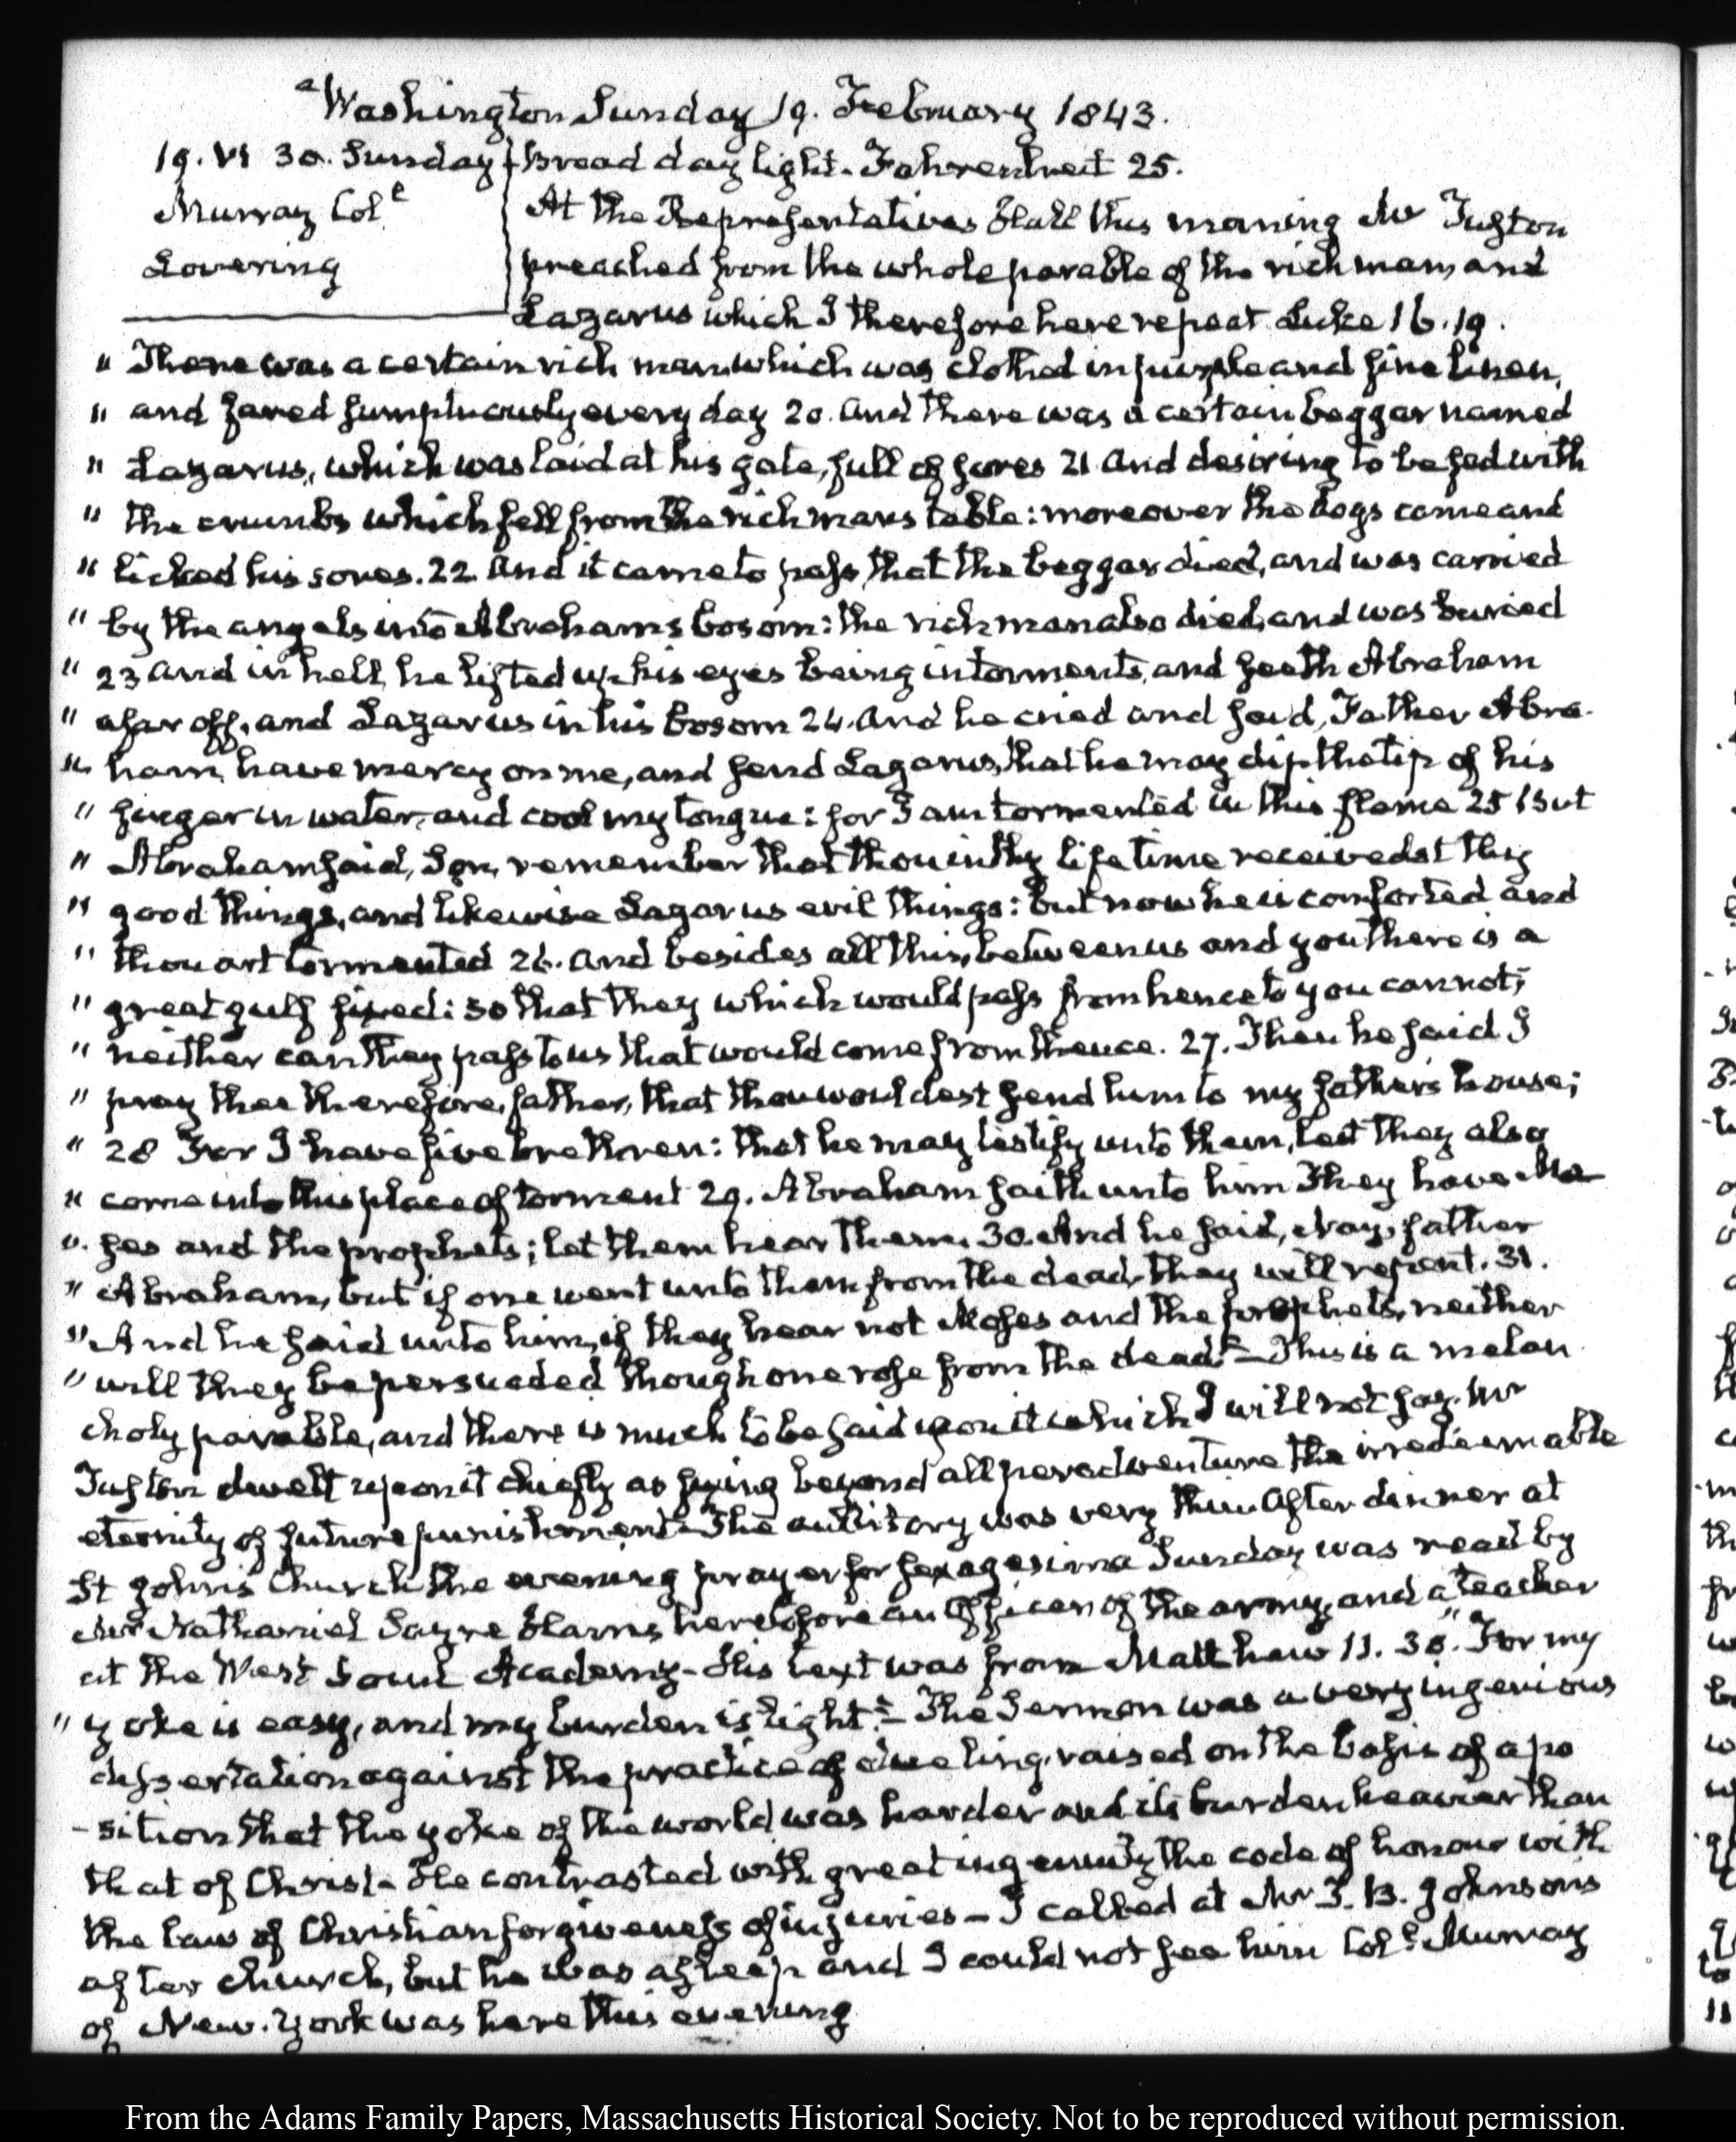 Washington Sunday 19. February 1843.
19. VI 30. Sunday
Murray Col.
Lovering
Broad day light. Fahrenheit 25.
At the Representatives Hall this morning Mr Tuston
preached from the whole parable of the rich man, and
Lazarus which I therefore here repeat Luke 16.19.
" There was a certain rich man, which was clothed in purple and fine linen,
" and fared sumptuously every day 20. And there was a certain beggar named
" Lazarus, which was laid at his gate, full of sores 21 And desiring to be fed with
" the crumbs which fell from the rich mans table: moreover the dogs came and
" licked his sores. 22. And it came to pass, that the beggar died, and was carried
" by the angels into Abrahams bosom: the rich man also died, and was buried
" 23 And in hell he lifted up his eyes being in torments, and seeth Abraham
" afar off, and Lazarus in his bosom 24. And he cried and said, Father Abra-
" ham, have mercy on me, and send Lazarus, that he may dip the tip of his
" finger in water, and cool my tongue: for I am tormented in this flame 25 But
" Abraham said, Son, remember that thou in thy life time receivedst thy
" good things, and likewise Lazarus evil things: but now he is comforted and
" thou art tormented 26. And besides all this, between us and you there is a
" great gulf fixed: so that they which would pass from hence to you cannot;
" neither can they pass to us that would come from thence. 27. Then he said I
" pray thee therefore, father, that thou wouldest send him to my father's house;
" 28 For I have five brethren: that he may testify unto them, lest they also
" come into this place of torment 29. Abraham saith unto him They have Mo
" ses and the prophets; let them hear them. 30. And he said, Nay, father
" Abraham, but if one went unto them from the dead, they will repent. 31.
" And he said unto him, if they hear not Moses and the prophets, neither
" will they be persuaded though one rose from the dead" – This is a melan
choly parable, and there is much to be said upon it which I will not say. Mr
Tuston dwelt upon it chiefly as fixing beyond all peradventure the irredeemable
eternity of future punishment. The auditory was very thin. After dinner at
St John's Church the evening prayer for sexagesima Sunday was read by
Mr Nathaniel Sayre Harris heretofore an Officer of the army, and a teacher
at the West Point Academy – His text was from Matthew 11. 30. "For my
" yoke is easy, and my burden is light." – The Sermon was a very ingenious
dissertation against the practice of dueling, raised on the basis of a po
-sition that the yoke of the world was harder and its burden heavier than
that of Christ – He contrasted with great ingenuity the code of honour with
the law of Christian forgiveness of injuries – I called at Mr J. B. Johnsons
after church, but he was asleep and I could not see him Col. Murray
of New-York was here this evening
From the Adams Family Papers, Massachusetts Historical Society. Not to be reproduced without permission.